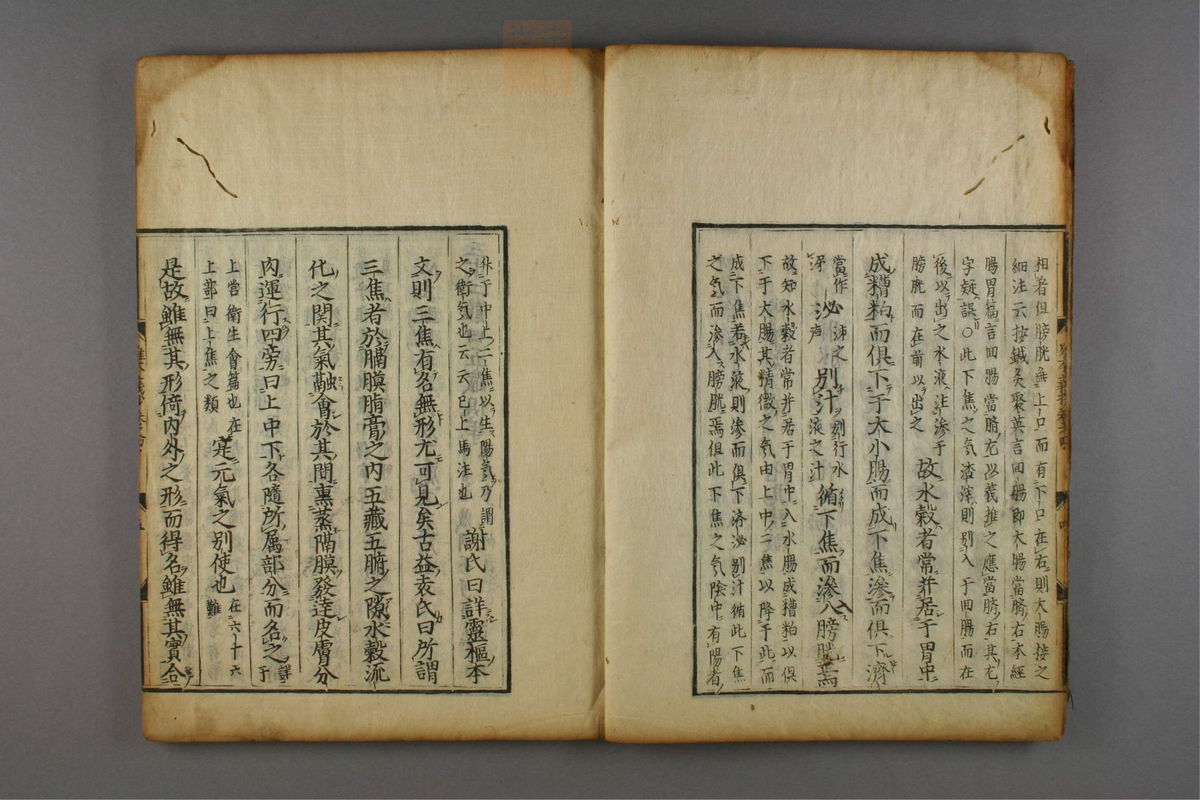 相着但膀胱無上口而有下口在右則大腸接之
細注云按鍼灸聚英言回腸即大腸當臍右本經
腸胃篇言回腸當臍左以義推之應當臍右其左
字疑誤〇此下焦之氣滲滓則別入于回腸而在
後以出之水液注滲于
膀胱而在前以出之
故水穀者常并居于胃中
成糟粕而俱下于大小腸而成下焦滲而俱下濟
當作
泲
泌
泲之
声
別汁
別行水
液之汁
循下焦而滲入膀胱焉
故知水穀者常并居于胃中入小腸成糟粕以俱
下于大腸其精微之氣由上中二焦以降于此而
成下焦若水液則滲而俱下济泌別汁循此下焦
之気而滲入膀胱焉但此下焦之気陰中有陽者
升于中上二焦以生陽気乃謂
之衛気也云云已上馬注也
謝氏曰詳靈樞本
文則三焦有名無形尤可見矣古益袁氏曰所謂
三焦者於膈膜脂膏之内五藏五腑之隙水穀流
化之関其氣融會於其間熏蒸隔膜發達皮膚分
肉運行四旁曰上中下各隨所属部分而名之
詳
于
上當衛生會篇也在
上部曰上焦之類
寔元氣之別使也
在六十六
難
是故雖無其形倚内外之形而得名雖無其實合